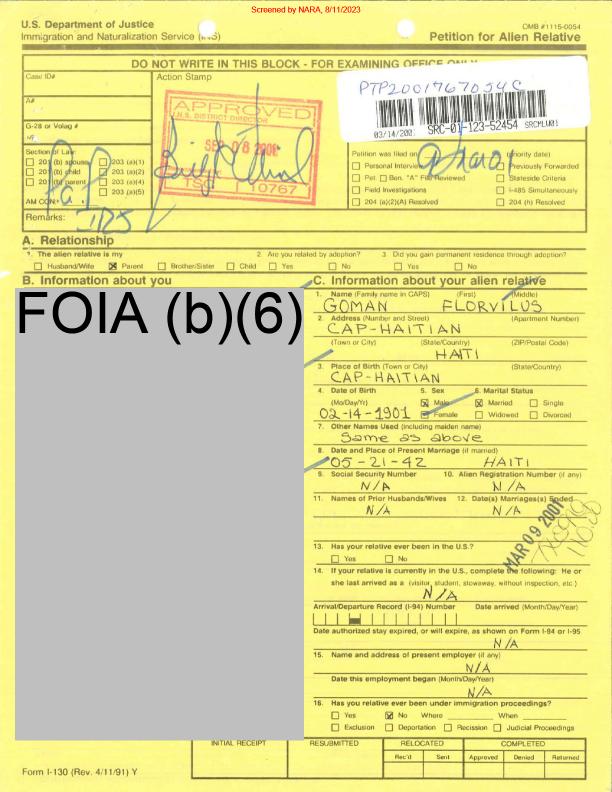 Screened by NARA, 8/11/2023
U.S. Department of Justice
Immigration and Naturalization Service (INS)
OMB #1115-0054
Petition for Alien Relative
DO NOT WRITE IN THIS BLOCK - FOR EXAMINING OFFICE ONLY
Case ID#
Action Stamp
A#
G-28 or Volag #
Section of Law:
201 (b) spouse 203 (a)(1)
201 (b) child 203 (a)(2)
201 (b) parent 203 (a)(4)
203 (a)(5)
AM CON:
Remarks:
APPROVED
I.N.S. DISTRICT DIRECTOR
SEP 08 2001
TSC 10767
PTP2001767054C
03/14/200 SRC-01-123-52454 SRCMLW01
Petition was filed on (priority date)
Personal Interview Previously Forwarded
Pet. Ben. "A" File Reviewed Stateside Criteria
Field Investigations I-485 Simultaneously
204 (a)(2)(A) Resolved 204 (h) Resolved
A. Relationship
1. The alien relative is my 2. Are you related by adoption? 3. Did you gain permanent residence through adoption?
Husband/Wife Parent Brother/Sister Child Yes No Yes No
B. Information about you
FOIA (b)(6)
C. Information about your alien relative
1. Name (Family name in CAPS) (First) (Middle)
GOMAN FLORVILUS
2. Address (Number and Street) (Apartment Number)
CAP-HAITIAN
(Town or City) (State/Country) (ZIP/Postal Code)
HAITI
3. Place of Birth (Town or City) (State/Country)
CAP-HAITIAN
4. Date of Birth 5. Sex 6. Marital Status
(Mo/Day/Yr) Male Married Single
02-14-1901 Female Widowed Divorced
7. Other Names Used (including maiden name)
Same as above
8. Date and Place of Present Marriage (if married)
05-21-42 HAITI
9. Social Security Number 10. Alien Registration Number (if any)
N/A N/A
11. Names of Prior Husbands/Wives 12. Date(s) Marriages(s) Ended
N/A N/A
MAR 09 2001
13. Has your relative ever been in the U.S.?
Yes No
14. If your relative is currently in the U.S., complete the following: He or
she last arrived as a (visitor, student, stowaway, without inspection, etc.)
N/A
Arrival/Departure Record (I-94) Number Date arrived (Month/Day/Year)
Date authorized stay expired, or will expire, as shown on Form I-94 or I-95
N/A
15. Name and address of present employer (if any)
N/A
Date this employment began (Month/Day/Year)
N/A
16. Has you relative ever been under immigration proceedings?
Yes No Where When
Exclusion Deportation Recission Judicial Proceedings
INITIAL RECEIPT RESUBMITTED RELOCATED COMPLETED
Rec'd Sent Approved Denied Returned
Form I-130 (Rev. 4/11/91) Y